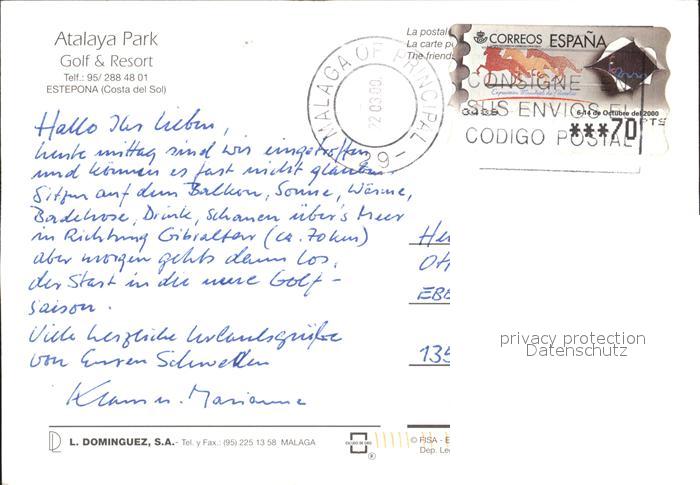 Atalaya Park
Golf & Resort
Telf.: 95/ 288 48 01
ESTEPONA (Costa del Sol)
La postal
La carte p
The friend
CORREOS ESPAÑA
6-14 de Octubre del 2000
***70 PTS
MALAGA OF PRINCIPAL
-29-
CONSIGNE
SUS ENVIOS EL
CODIGO POSTAL
Hallo Ihr Lieben,
heute mittag sind wir eingetroffen
und können es fast nicht glauben.
Sitzen auf dem Balkon, Sonne, Wärme,
Badehose, Drink, Schauen über's Meer
in Richtung Gibraltar (ca. 70 km)
aber morgen gehts dann los,
der Start in die neue Golf-
saison.
Viele herzliche Urlaubsgrüße
von Euren Schwellen
Klaus u. Marianne
He
OH
EBE
135
privacy protection
Datenschutz
L. DOMINGUEZ, S.A.- Tel. y Fax.: (95) 225 13 58 MALAGA
© FISA - E
Dep. Le